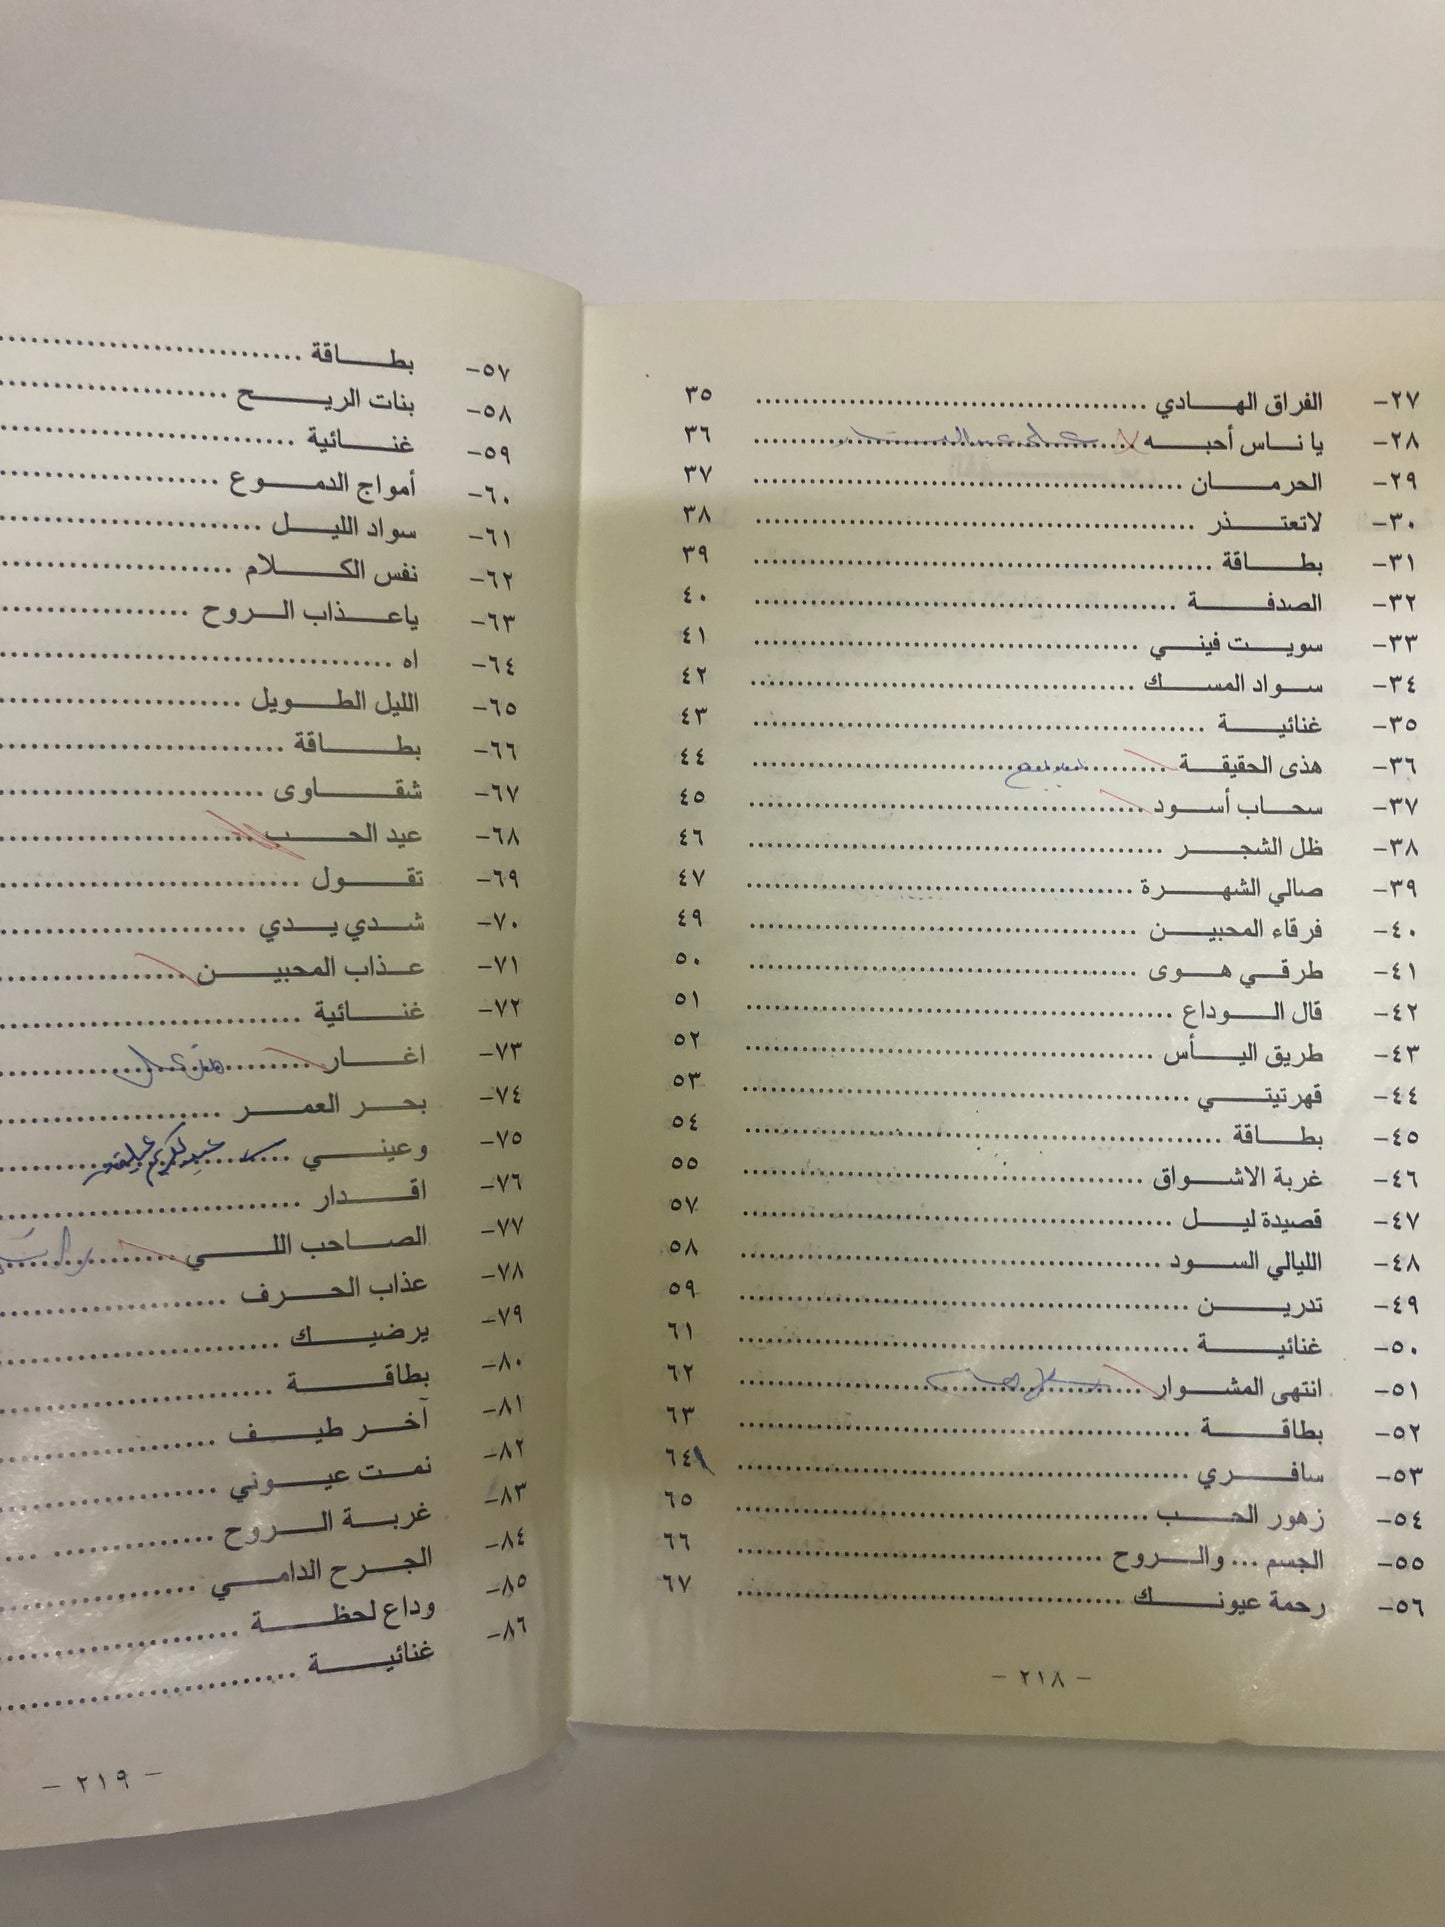 ٢٧- الفراق الهادي ........ ٣٥
٢٨- يا ناس أحبه ........ ٣٦
٢٩- الحرمان ........ ٣٧
٣٠- لاتعتذر ........ ٣٨
٣١- بطاقة ........ ٣٩
٣٢- الصدفة ........ ٤٠
٣٣- سويت فيني ........ ٤١
٣٤- سواد المسك ........ ٤٢
٣٥- غنائية ........ ٤٣
٣٦- هذى الحقيقة ........ ٤٤
٣٧- سحاب أسود ........ ٤٥
٣٨- ظل الشجر ........ ٤٦
٣٩- صالي الشهرة ........ ٤٧
٤٠- فرقاء المحبين ........ ٤٩
٤١- طرقي هوى ........ ٥٠
٤٢- قال الوداع ........ ٥١
٤٣- طريق اليأس ........ ٥٢
٤٤- قهرتيني ........ ٥٣
٤٥- بطاقة ........ ٥٤
٤٦- غربة الاشواق ........ ٥٥
٤٧- قصيدة ليل ........ ٥٧
٤٨- الليالي السود ........ ٥٨
٤٩- تدرين ........ ٥٩
٥٠- غنائية ........ ٦١
٥١- انتهى المشوار ........ ٦٢
٥٢- بطاقة ........ ٦٣
٥٣- سافري ........ ٦٤
٥٤- زهور الحب ........ ٦٥
٥٥- الجسم ... والروح ........ ٦٦
٥٦- رحمة عيونك ........ ٦٧
- ٢١٨ -
٥٧- بطاقة ........
٥٨- بنات الريح ........
٥٩- غنائية ........
٦٠- أمواج الدموع ........
٦١- سواد الليل ........
٦٢- نفس الكلام ........
٦٣- ياعذاب الروح ........
٦٤- اه ........
٦٥- الليل الطويل ........
٦٦- بطاقة ........
٦٧- شقاوى ........
٦٨- عيد الحب ........
٦٩- تقول ........
٧٠- شدي يدي ........
٧١- عذاب المحبين ........
٧٢- غنائية ........
٧٣- اغار ........
٧٤- بحر العمر ........
٧٥- وعيني ........ عبدالكريم عبدالقادر
٧٦- اقدار ........
٧٧- الصاحب اللي ........
٧٨- عذاب الحرف ........
٧٩- يرضيك ........
٨٠- بطاقة ........
٨١- آخر طيف ........
٨٢- نمت عيوني ........
٨٣- غربة الروح ........
٨٤- الجرح الدامي ........
٨٥- وداع لحظة ........
٨٦- غنائية ........
- ٢١٩ -